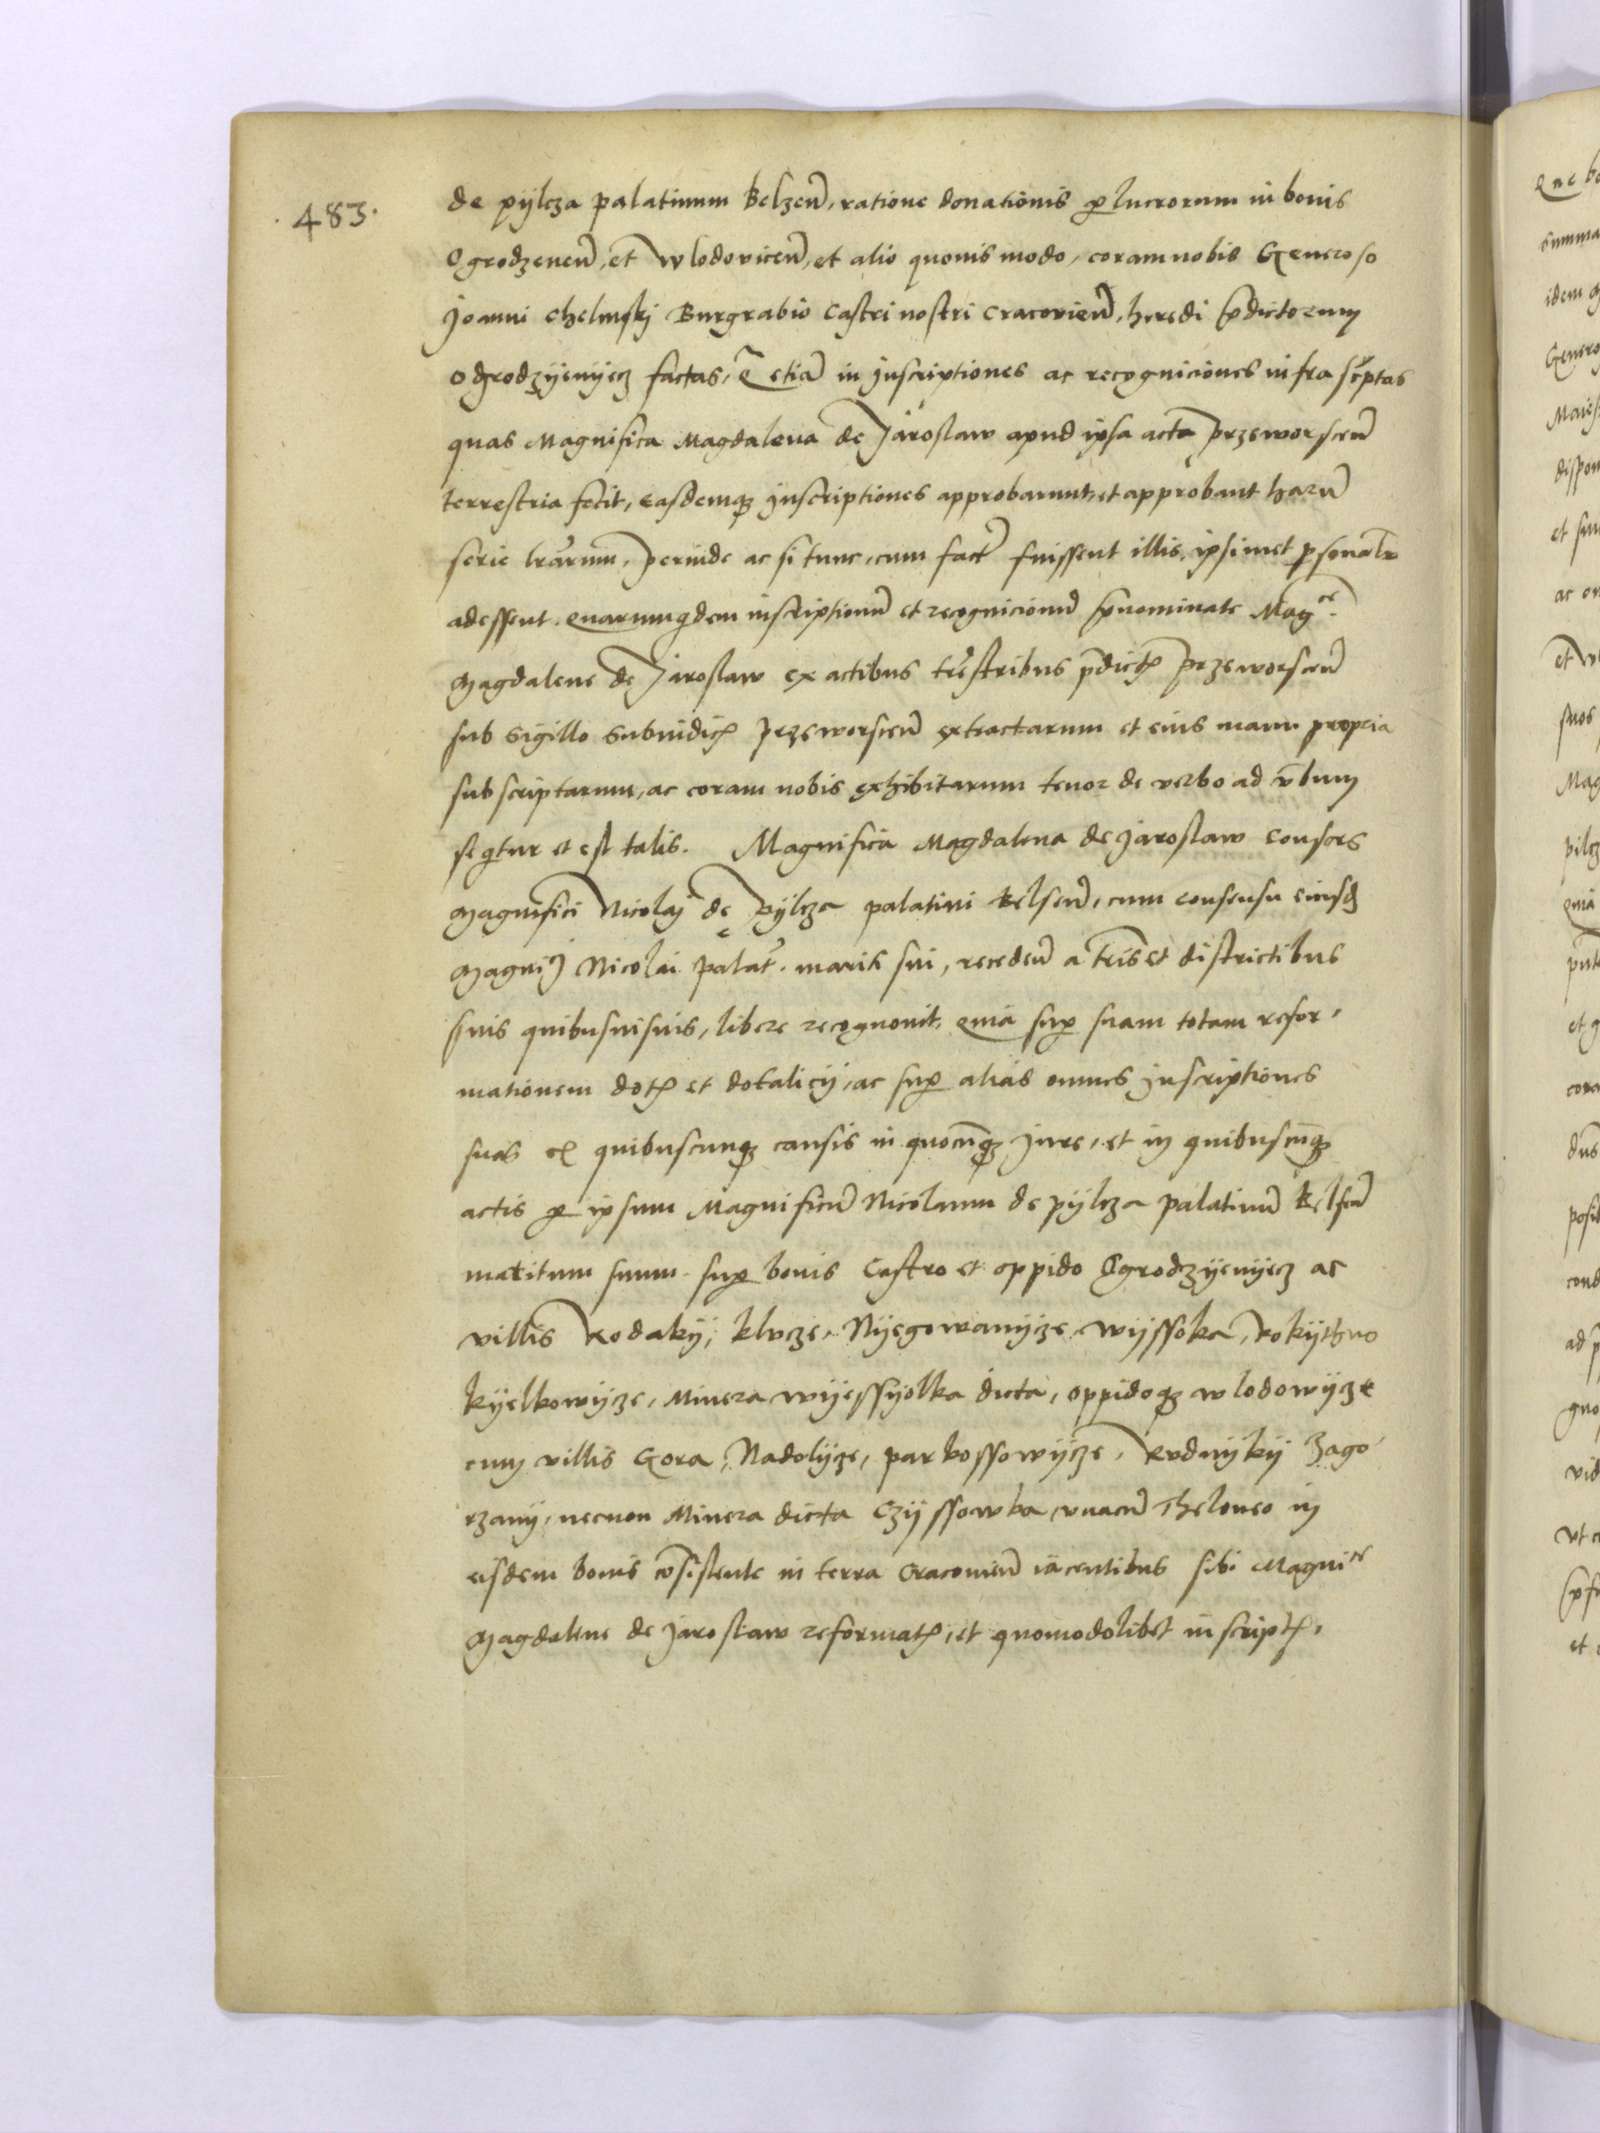 .483.
de pÿlcza palatinum Belzen̄, ratione donationis ꝑ lucrorum in bonis
Ogrodzenen̄, et wlodovicen̄, et alio quovis modo, coram nobis Generoso
Joanni Chelmskj Burgrabio Castri nostri Cracovien̄, heredi p̄dictorum
Ogrodzÿenÿecz factas, etiā in jnscriptiones ac recogniciones infrascr̄ptas
quas Magnifica Magdalena de Jaroslaw apud ipsa acta przeworscen̄
terrestria fecit, easdemqꝫ jnscriptiones approbarunt, et approbant harū
serie lr̄arum, perinde ac si tunc, cum fact̄ fuissent illis, ipsimet ꝑsonalr̄
adessent. quarumqdem inscriptionū et recognicionū p̄nominate Mag^ce.
Magdalene de Jaroslaw ex actibus tr̄estribus p̄dictꝭ przeworscen̄
sub sigillo Subiudicꝭ przeworscen̄ extractarum et eius manu propria
subscriptarum, ac coram nobis exhibitarum tenor de verbo ad v̄bum
seqtur et est talis. Magnifica Magdalena de Jaroslaw consors
Magnifici Nicolaj de Pÿlcza palatini Belsen̄, cum consensu eiusd̄
Nicolai palat̄. mariti sui, receden̄ a tris et districtibus
suis quibusvisuis, libere recognovit, quia suꝑ suam totam refor,
mationem dotꝭ et dotalicij, ac suꝑ alias omnes jnscriptiones
suas ex quibuscunqꝫ causis in quocūqꝫ jure, et in quibuscūqꝫ
actis ꝑ ipsum Magnificū Nicolaum de pÿlcza palatinū Belsen̄
maritum suum suꝑ bonis Castro et oppido Ogrodzÿenÿecz ac
villis Rodakÿ, klucze, Nÿegowanÿcze, wÿssoka, Rokÿthno
kÿelkowÿcze, Minera wÿessÿolka dicta, oppidoqꝫ wlodowÿcze
cum villis Gora, Nadolÿcze, parkossowÿcze, Rudnÿkÿ Zago
rzanÿ, necnon Minera dicta Czÿssowka vnacū Theloneo in
eisdem bonis cōsistente in terra Cracovien̄ iacentibus sibi Magni^ce
Magdalene de Jaroslaw reformatꝭ, et quomodolibet inscriptꝭ,